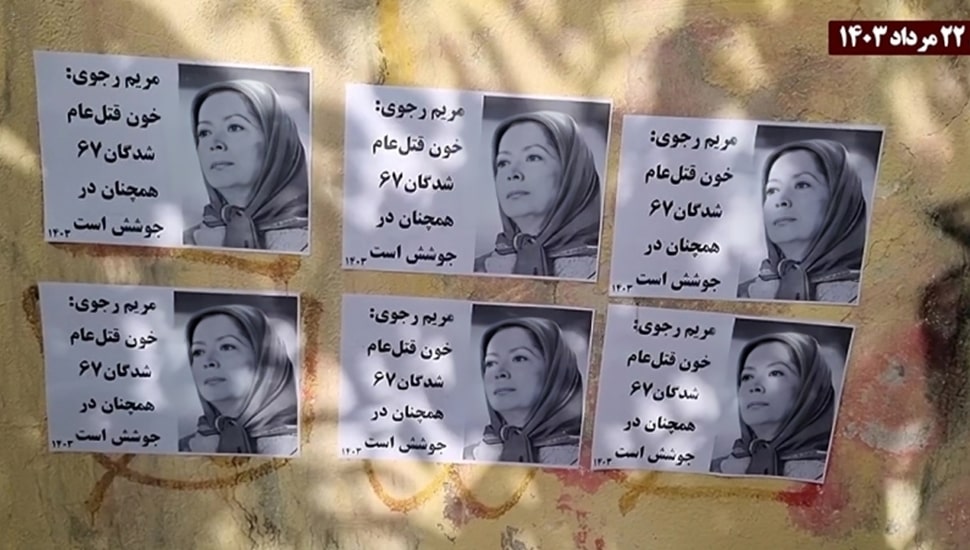 ۲۲ مرداد ۱۴۰۳
مریم رجوی:
خون قتل‌عام
شدگان ۶۷
همچنان در
جوشش است
۱۴۰۳
مریم رجوی:
خون قتل‌عام
شدگان ۶۷
همچنان در
جوشش است
۱۴۰۳
مریم رجوی:
خون قتل‌عام
شدگان ۶۷
همچنان در
جوشش است
۱۴۰۳
مریم رجوی:
خون قتل‌عام
شدگان ۶۷
همچنان در
جوشش است
۱۴۰۳
مریم رجوی:
خون قتل‌عام
شدگان ۶۷
همچنان در
جوشش است
۱۴۰۳
مریم رجوی:
خون قتل‌عام
شدگان ۶۷
همچنان در
جوشش است
۱۴۰۳